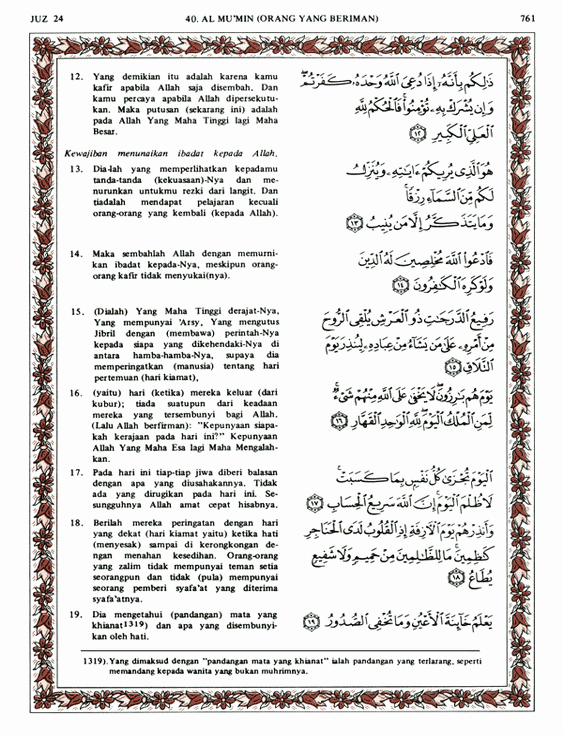 JUZ 24 40. AL MU'MIN (ORANG YANG BERIMAN) 761
12. Yang demikian itu adalah karena kamu
kafir apabila Allah saja disembah. Dan
kamu percaya apabila Allah dipersekutu-
kan. Maka putusan (sekarang ini) adalah
pada Allah Yang Maha Tinggi lagi Maha
Besar.
ذَٰلِكُم بِأَنَّهُۥٓ إِذَا دُعِىَ ٱللَّهُ وَحْدَهُۥ كَفَرْتُمْ
وَإِن يُشْرَكْ بِهِۦ تُؤْمِنُوا۟ فَٱلْحُكْمُ لِلَّهِ
ٱلْعَلِىِّ ٱلْكَبِيرِ ١٢
Kewajiban menunaikan ibadat kepada Allah.
13. Dia-lah yang memperlihatkan kepadamu
tanda-tanda (kekuasaan)-Nya dan me-
nurunkan untukmu rezki dari langit. Dan
tiadalah mendapat pelajaran kecuali
orang-orang yang kembali (kepada Allah).
هُوَ ٱلَّذِى يُرِيكُمْ ءَايَٰتِهِۦ وَيُنَزِّلُ
لَكُم مِّنَ ٱلسَّمَآءِ رِزْقًا
وَمَا يَتَذَكَّرُ إِلَّا مَن يُنِيبُ ١٣
14. Maka sembahlah Allah dengan memurni-
kan ibadat kepada-Nya, meskipun orang-
orang kafir tidak menyukai(nya).
فَٱدْعُوا۟ ٱللَّهَ مُخْلِصِينَ لَهُ ٱلدِّينَ
وَلَوْ كَرِهَ ٱلْكَٰفِرُونَ ١٤
15. (Dialah) Yang Maha Tinggi derajat-Nya,
Yang mempunyai 'Arsy, Yang mengutus
Jibril dengan (membawa) perintah-Nya
kepada siapa yang dikehendaki-Nya di
antara hamba-hamba-Nya, supaya dia
memperingatkan (manusia) tentang hari
pertemuan (hari kiamat),
رَفِيعُ ٱلدَّرَجَٰتِ ذُو ٱلْعَرْشِ يُلْقِى ٱلرُّوحَ
مِنْ أَمْرِهِۦ عَلَىٰ مَن يَشَآءُ مِنْ عِبَادِهِۦ لِيُنذِرَ يَوْمَ
ٱلتَّلَاقِ ١٥
16. (yaitu) hari (ketika) mereka keluar (dari
kubur); tiada suatupun dari keadaan
mereka yang tersembunyi bagi Allah.
(Lalu Allah berfirman): "Kepunyaan siapa-
kah kerajaan pada hari ini?" Kepunyaan
Allah Yang Maha Esa lagi Maha Mengalah-
kan.
يَوْمَ هُم بَٰرِزُونَ لَا يَخْفَىٰ عَلَى ٱللَّهِ مِنْهُمْ شَىْءٌ
لِّمَنِ ٱلْمُلْكُ ٱلْيَوْمَ لِلَّهِ ٱلْوَٰحِدِ ٱلْقَهَّارِ ١٦
17. Pada hari ini tiap-tiap jiwa diberi balasan
dengan apa yang diusahakannya. Tidak
ada yang dirugikan pada hari ini. Se-
sungguhnya Allah amat cepat hisabnya.
ٱلْيَوْمَ تُجْزَىٰ كُلُّ نَفْسٍۭ بِمَا كَسَبَتْ
لَا ظُلْمَ ٱلْيَوْمَ إِنَّ ٱللَّهَ سَرِيعُ ٱلْحِسَابِ ١٧
18. Berilah mereka peringatan dengan hari
yang dekat (hari kiamat yaitu) ketika hati
(menyesak) sampai di kerongkongan de-
ngan menahan kesedihan. Orang-orang
yang zalim tidak mempunyai teman setia
seorangpun dan tidak (pula) mempunyai
seorang pemberi syafa'at yang diterima
syafa'atnya.
وَأَنذِرْهُمْ يَوْمَ ٱلْءَازِفَةِ إِذِ ٱلْقُلُوبُ لَدَى ٱلْحَنَاجِرِ
كَٰظِمِينَ مَا لِلظَّٰلِمِينَ مِنْ حَمِيمٍ وَلَا شَفِيعٍ
يُطَاعُ ١٨
19. Dia mengetahui (pandangan) mata yang
khianat1319) dan apa yang disembunyi-
kan oleh hati.
يَعْلَمُ خَآئِنَةَ ٱلْأَعْيُنِ وَمَا تُخْفِى ٱلصُّدُورُ ١٩
1319). Yang dimaksud dengan "pandangan mata yang khianat" ialah pandangan yang terlarang, seperti
memandang kepada wanita yang bukan muhrimnya.